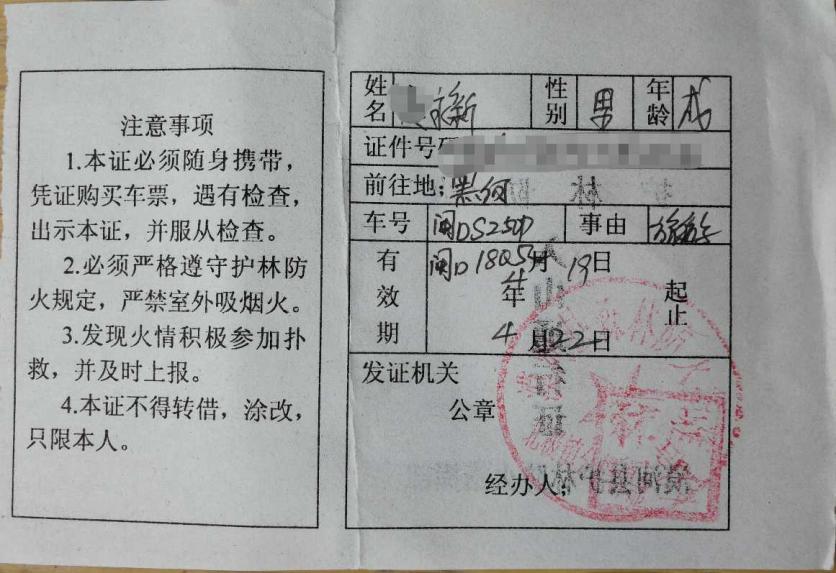 注意事项
1.本证必须随身携带，
凭证购买车票，遇有检查，
出示本证，并服从检查。
2.必须严格遵守护林防
火规定，严禁室外吸烟火。
3.发现火情积极参加扑
救，并及时上报。
4.本证不得转借，涂改，
只限本人。
姓名 新 性别 男 年龄
证件号码
前往地：黑河
车号 闽DS250D 事由 旅游
有效期 闽D1805 月19日
年 起止
4月22日
发证机关
公章
经办人：